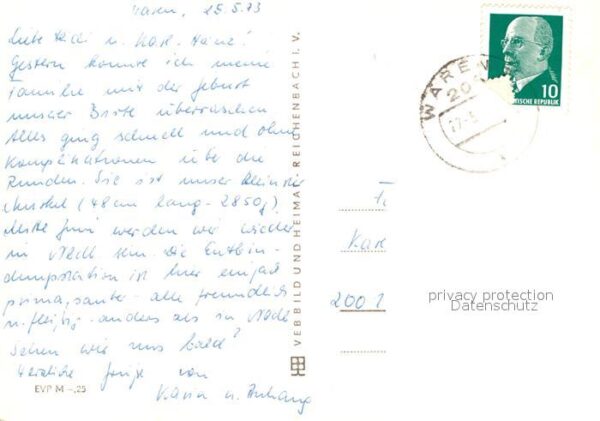 Waren, 25.5.73
Liebe Hedi u. Karl-Heinz!
Gestern konnte ich meine
Familie mit der Geburt
unserer überraschen
Alles ging schnell und ohne
Komplikationen über die
Runden. Sie ist unser kleinster
(48 cm lang - 2850g).
Mitte Juni werden wir wieder
in sein. Die Entbin-
dungsstation ist hier einfach
prima, sauber - alle freundlich
u. fleißig - anders als in
Sehen wir uns bald?
Herzliche Grüße von
Karin u. Anhang
EVP M -,25
VEB BILD UND HEIMAT REICHENBACH I. V.
WAREN
20
10
DEMOKRATISCHE REPUBLIK
Karl
2001
privacy protection
Datenschutz